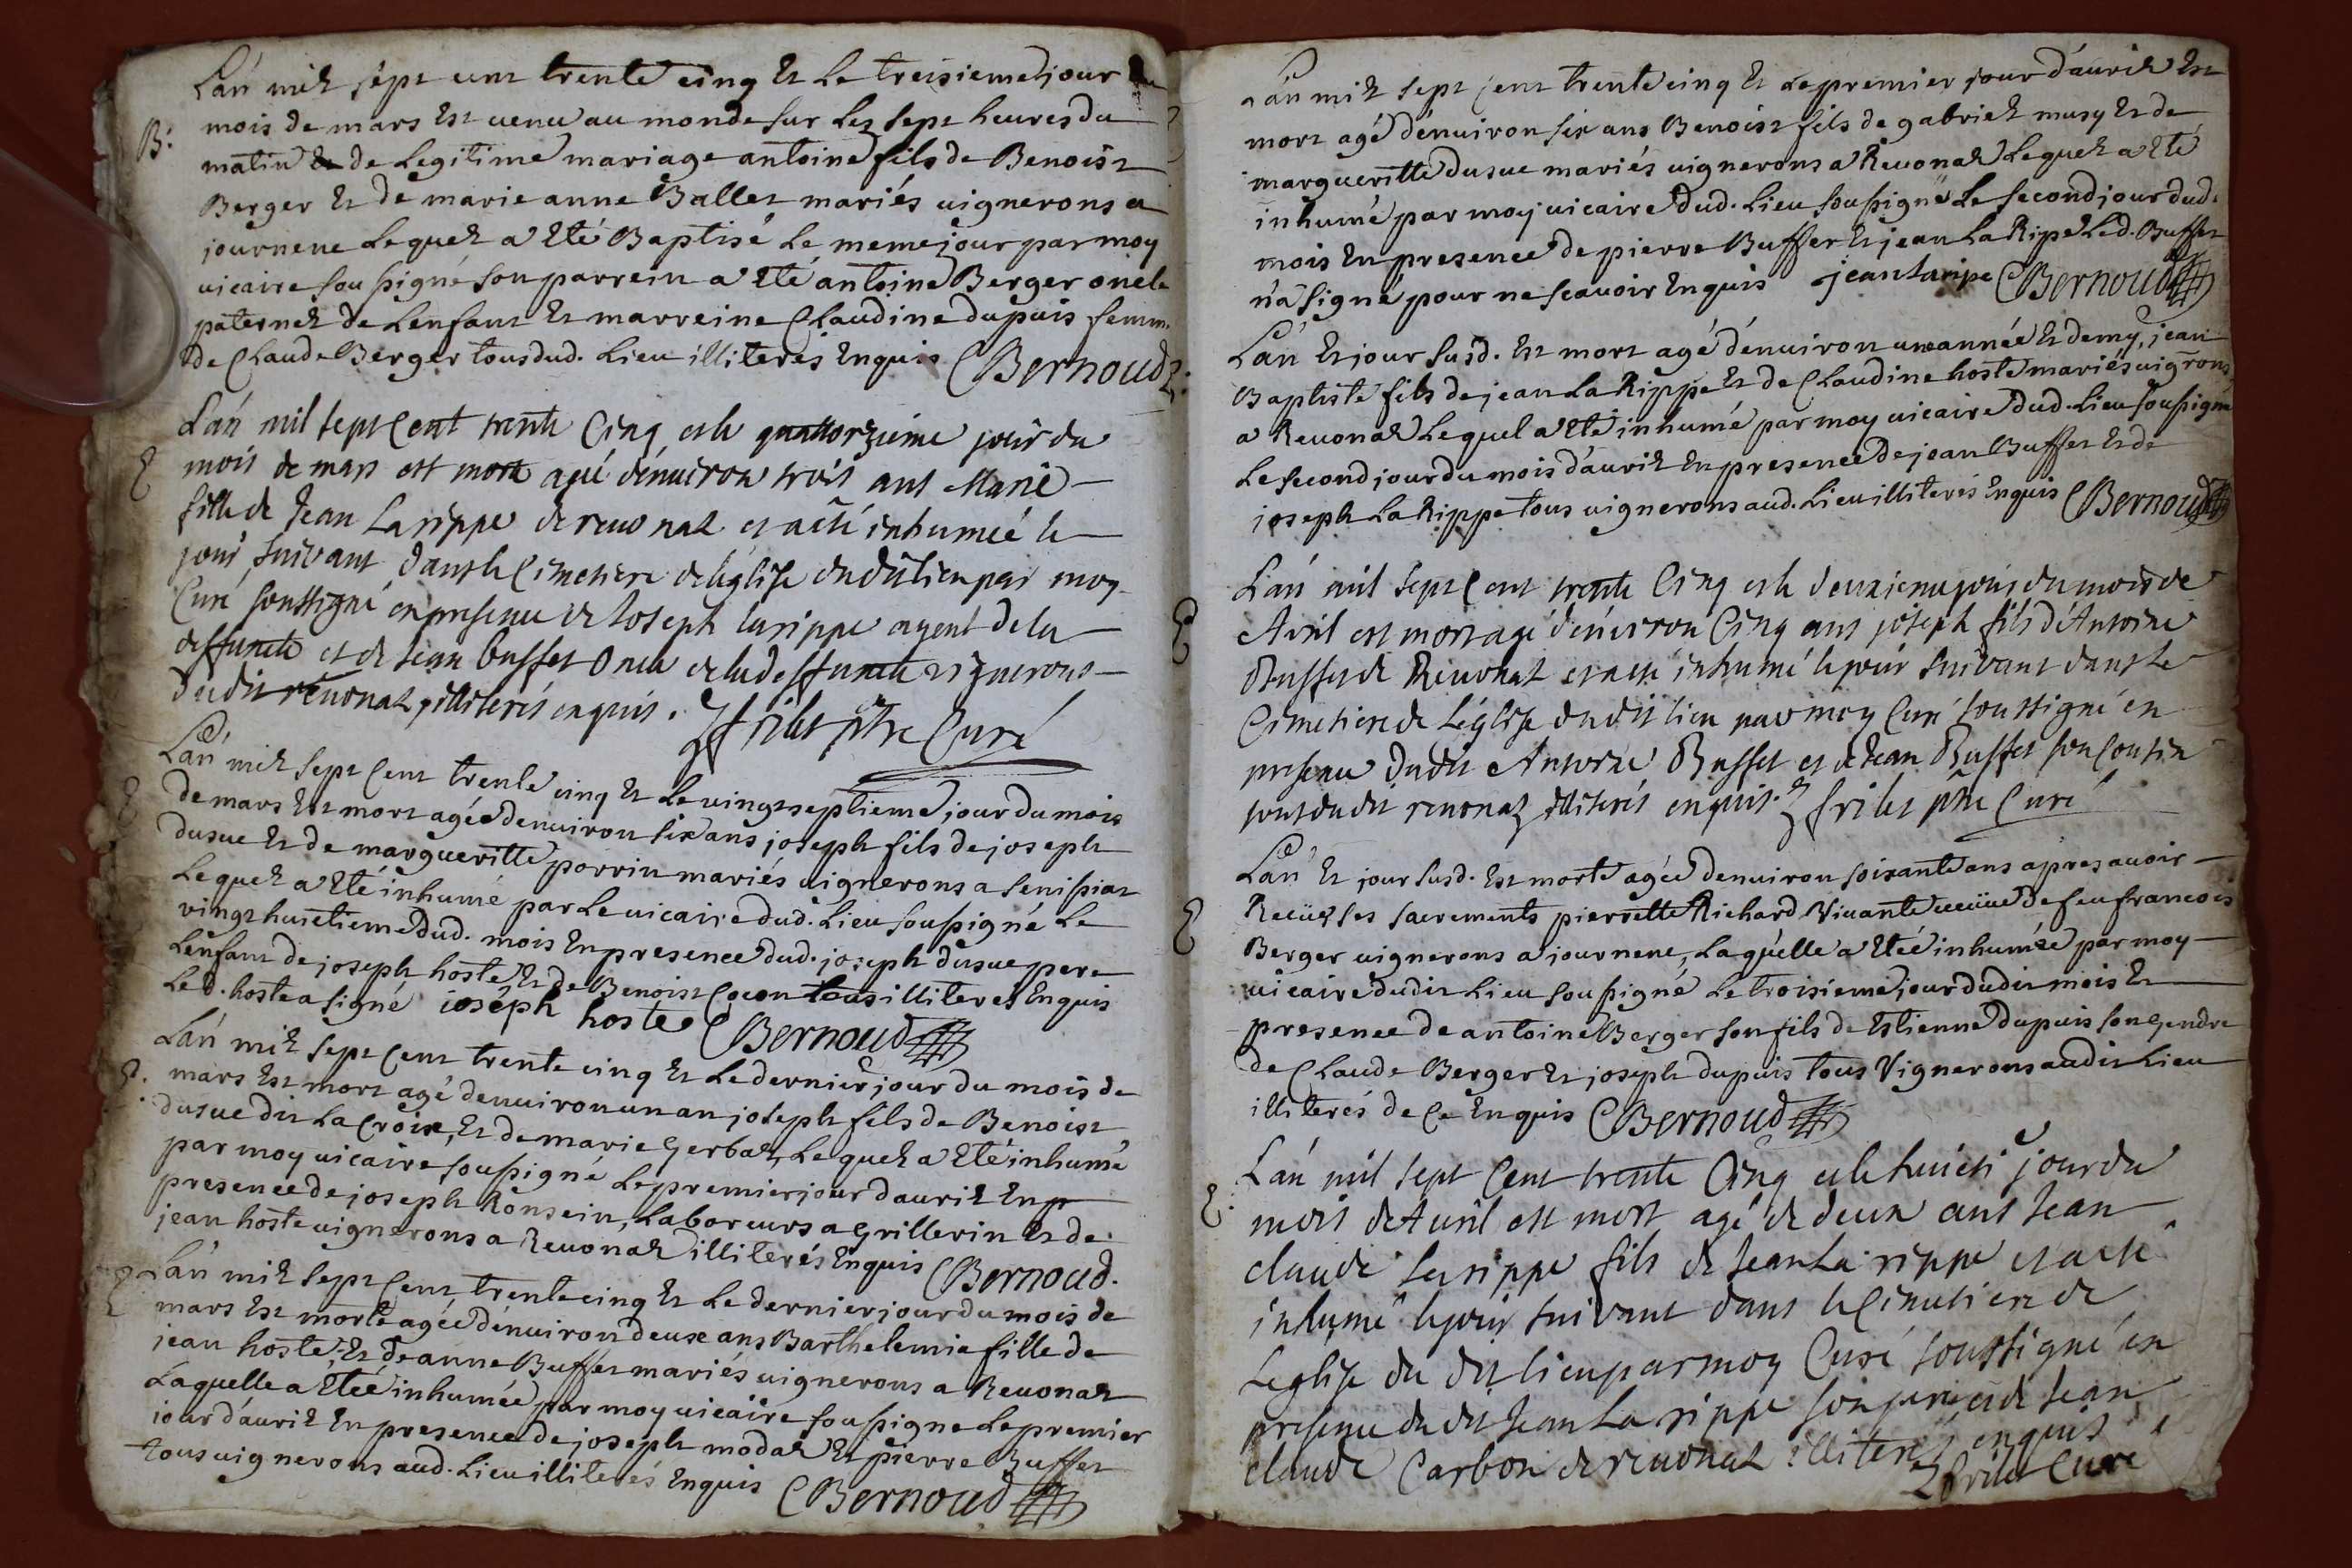 Lán mil sept cent trente cinq Et Le treisieme jour du
B. mois de mars Est venu au monde sur Les sept heures du
matin de Legitime mariage antoine fils de Benoist
Berger Et de marie anne Ballet mariés vignerons a
journene Lequel a Eté Baptisé Le meme jour par moy
vicaire soussigné son parrein a Eté antoine Berger oncle
paternel de Lenfant Et marreine Claudine dupuis femm.
de Claude Berger tous dud. Lieu illiterés Enquis Bernoud
Lán mil sept Cent trente Cinq et le quattorzieme jour du
E mois de mars est morte agé dénviron trois ans Marie
fille de Jean Larippe de revonal et a été inhumée le
jour suivant dans le Cimetiere de léglise du dit lieu par moy
Curé soussigné en presence de Joseph larippe ayent de la
deffuncte et de Jean buffet Oncle de lad deffuncte vignerons
dudit révonal, illiterés enquis. friler ptre Curé
Lán mil sept Cent trente cinq Et Le vingt septieme jour du mois
E de mars Est mort agée denviron six ans joseph fils de joseph
dusue Et de margueritte porrin mariés vignerons a senissiat
Lequel a Eté inhumé par Le vicaire dud. Lieu soussigné Le
vingt huitieme dud. mois En presence dud. joseph dusue pere
Lenfant de joseph hoste Et de Benoist Cocon tous illiterés Enquis
Led. hoste a signé ioséph hoste Bernoud
Lán mil sept Cent trente cinq Et Le dernier jour du mois de
E. mars Est mort agé denviron un an joseph fils de Benoist
dusue dit La Croix, Et de marie Gerbal, Lequel a Eté inhumé
par moy vicaire soussigné Le premier jour davril En p
presence de joseph Ronsein, Laboreurs a Grillerin Et de
jean hoste vignerons a Revonal illiterés Enquis Bernoud.
E Lán mil sept Cent trente cinq Et Le dernier jour du mois de
mars Est morte agée dénviron deux ans Barthelemie fille de
jean hoste, Et de anne Buffet mariés vignerons a Revonal
Laquelle a Eteé inhumée par moy vicaire soussigne Le premier
jour dávril En presence de joseph modal Et pierre Buffet
tous vignerons aud. Lieu illiterés Enquis Bernoud
Lán mil sept Cent trente cinq Et Le premier jour dávril Est
mort agé dénviron six ans Benoist fils de gabriel musy Et de
margueritte dusue mariés vignerons a Revonal Lequel a Eté
inhumé par moy vicaire dud. Lieu soussigné Le second jour dud.
mois En presence de pierre Buffet Et jean La Ripe Led. Buffet
n'a signé pour ne scavoir Enquis jean laripe Bernoud
Lán Et jour susd. Est mort agé dénviron une année Et demy, jean
Baptiste fils de jean La Rippe Et de Claudine hoste mariés vigrons
a Revonal Lequel a Eté inhumé par moy vicaire dud. Lieu soussigné
Le second jour du mois dávril En presence de jean Buffet Et de
joseph La Rippe tous vignerons aud. Lieu illiterés Enquis Bernoud
Lán mil sept Cent trente Cinq et le deuxieme jour du mois de
E Avril est mort agé dénviron Cinq ans joseph fils d'Antoine
Buffet de Revonal et a été inhumé le jour suivant dans le
Cimetiere de Léglise du dit lieu par moy Curé soussigné en
presence dudit Antoine Buffet et de Jean Buffet son Cousin
tous du dit revonal illiterés enquis. friler ptre Curé
Lán Et jour susd. Est morte agée denviron soixante ans apres avoir
E Recüe ses sacrements pierrette Richard Vivante veuve de feu francois
Berger vignerons a journene, Laquelle a Eteé inhumée par moy
vicaire dudit Lieu soussigné Le troisieme jour dudit mois Et
presence de antoine Berger son fils de Estienne dupuis son gendre
de Claude Berger Et joseph dupuis tous Vignerons audit Lieu
illiterés de Ce Enquis Bernoud
Lán mil sept Cent trente Cinq et le huicti jour du
E. mois de Avril est mort agé de deux ans Jean
claude larippe fils de Jean La rippe et a été
inhumé le jour suivant dans le Cimetiere de
Léglise du dit lieu par moy Curé soussigné en
presence du dit Jean La rippe son pere et de Jean
claude Carbon de revonal illiterés enquis
friler Curé